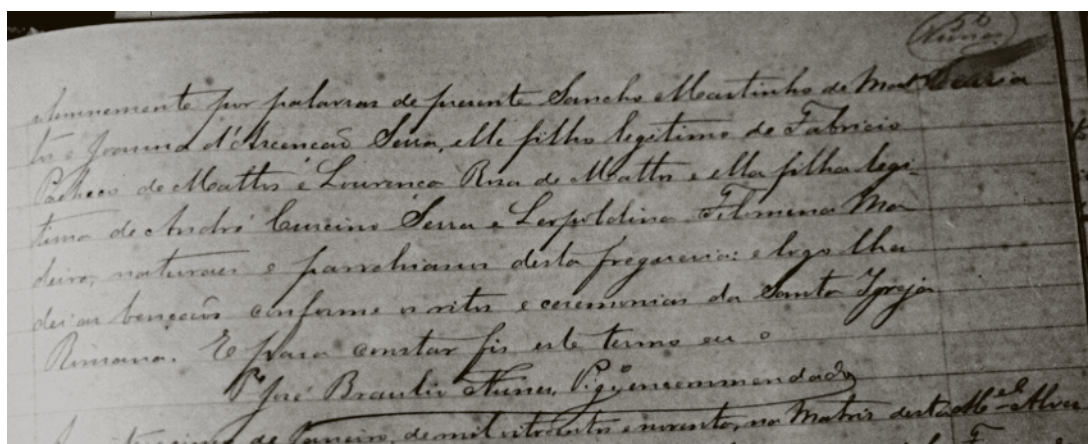 56
Nunes
solemnemente por palavras de presente Sancho Martinho de Mat
tos e Joanna d'Ascencaõ Serra, elle filho legitimo de Fabricio
Pacheco de Mattos e Lourença Rosa de Mattos e ella filha legi-
tima de André Curcino Serra e Leopoldina Filomena Ma
deira, naturaes e parrochianos desta freguesia: e logo lhes
dei as bencaõs conforme os ritos e ceremonias da Santa Igreja
Romana. E para constar fis este termo eu o
Pe José Braulio Nunes, Vigº encommendado
de Janeiro, de mil oitocentos e noventa, na Matris desta
Mel Alves